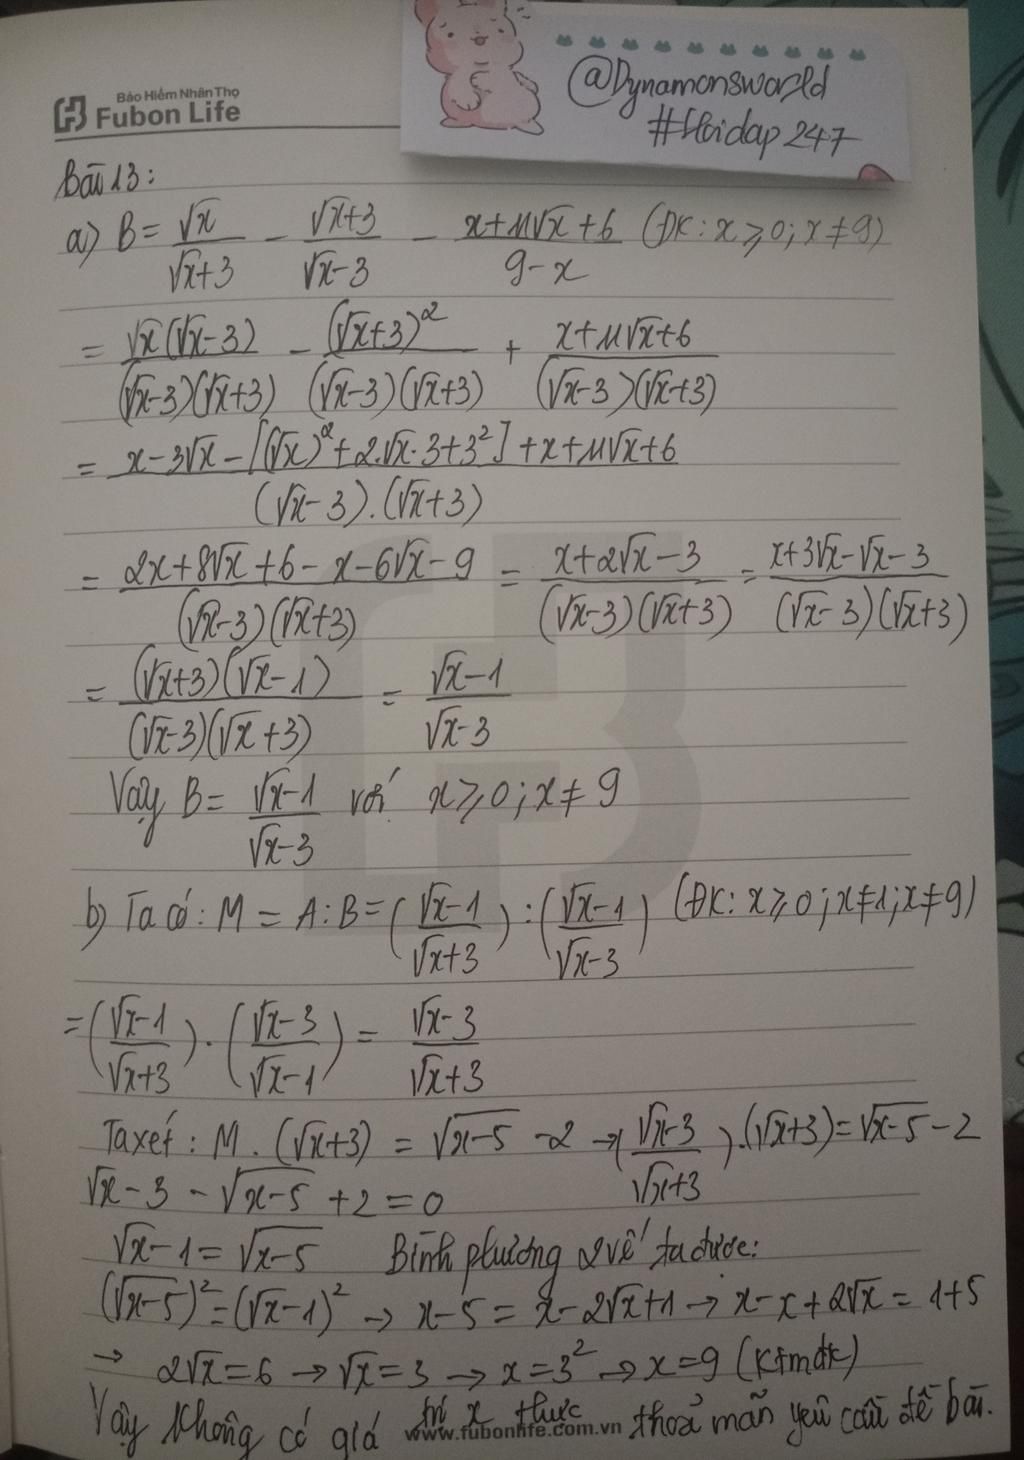 Bảo Hiểm Nhân Thọ
Fubon Life
@Dynamonsworld
#Hoidap247
Bài 13:
a) B = √x/(√x+3) - (√x+3)/(√x-3) - (x+11√x+6)/(9-x) (ĐK: x ⩾ 0; x ≠ 9)
= √x(√x-3)/((√x-3)(√x+3)) - (√x+3)²/((√x-3)(√x+3)) + (x+11√x+6)/((√x-3)(√x+3))
= (x-3√x-[(√x)²+2.√x.3+3²]+x+11√x+6)/((√x-3).(√x+3))
= (2x+8√x+6-x-6√x-9)/((√x-3)(√x+3)) = (x+2√x-3)/((√x-3)(√x+3)) = (x+3√x-√x-3)/((√x-3)(√x+3))
= (√x+3)(√x-1)/((√x-3)(√x+3)) = (√x-1)/(√x-3)
Vậy B = (√x-1)/(√x-3) với x ⩾ 0; x ≠ 9
b) Ta có: M = A : B = ((√x-1)/(√x+3)) : ((√x-1)/(√x-3)) (ĐK: x ⩾ 0; x ≠ 1; x ≠ 9)
= ((√x-1)/(√x+3)) . ((√x-3)/(√x-1)) = (√x-3)/(√x+3)
Ta xét: M . (√x+3) = √(x-5) -2 → ((√x-3)/(√x+3)).(√x+3) = √(x-5) - 2
√x - 3 - √(x-5) + 2 = 0
√x - 1 = √(x-5) Bình phương 2 vế ta được:
(√(x-5))² = (√x-1)² → x-5 = x-2√x+1 → x-x+2√x = 1+5
→ 2√x = 6 → √x = 3 → x = 3² → x = 9 (ktmđk)
Vậy không có giá trị x thực thoả mãn yêu cầu đề bài.
www.fubonlife.com.vn